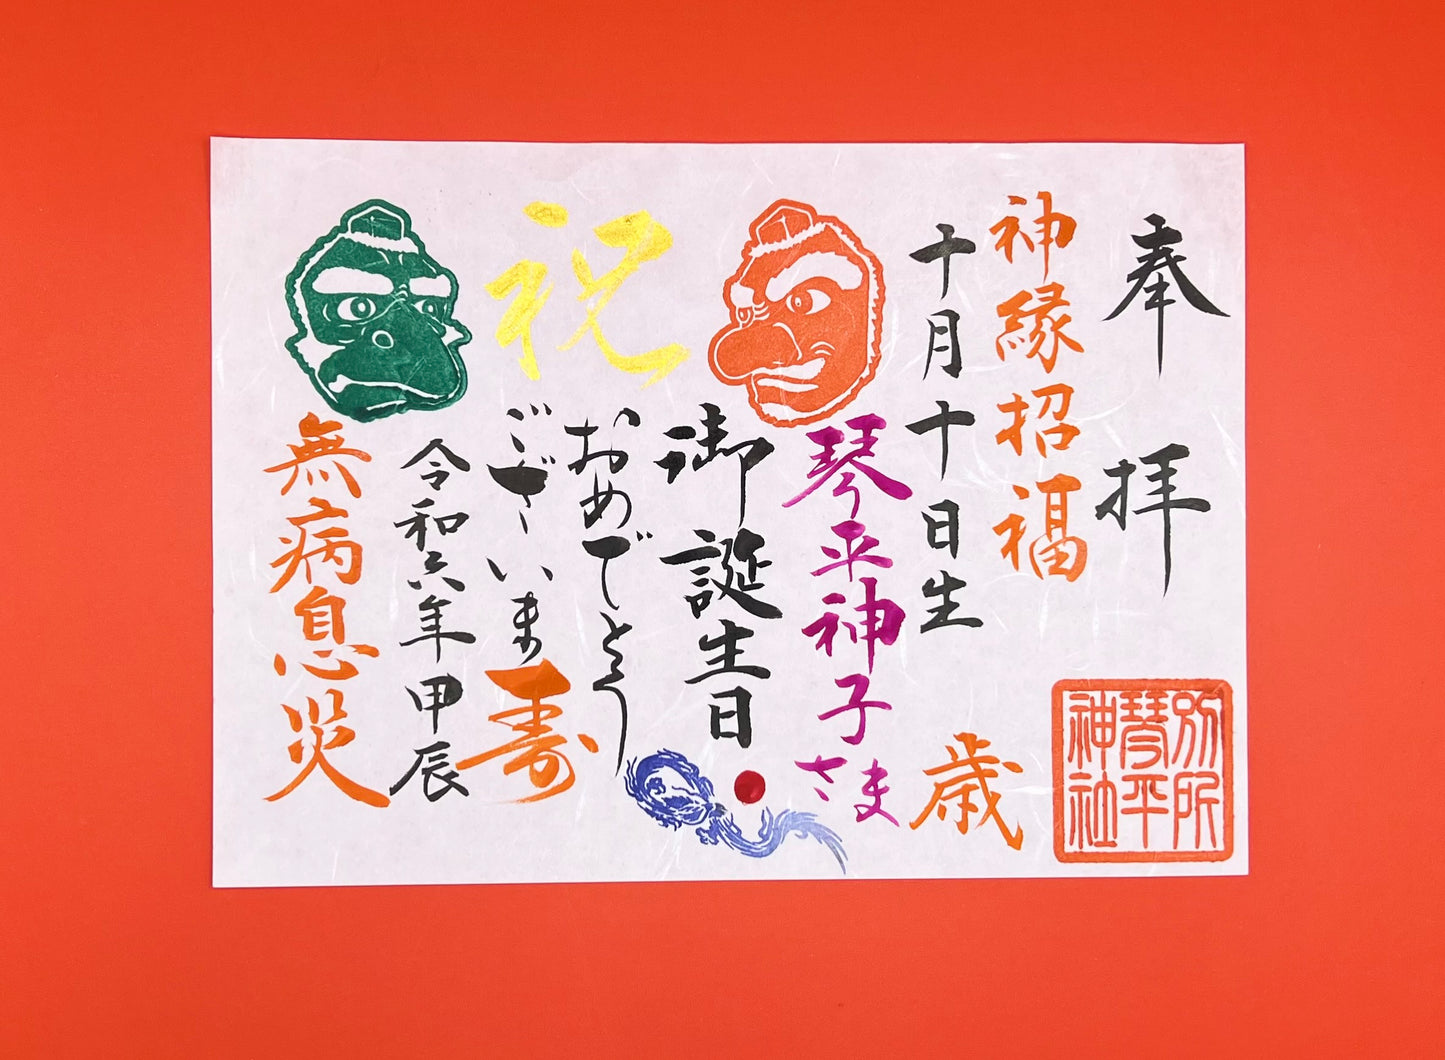 奉拝
神縁招福
十月十日生
歳
琴平神子さま
御誕生日
祝
おめでとう
ございます
寿
令和六年甲辰
無病息災
別所
琴平
神社